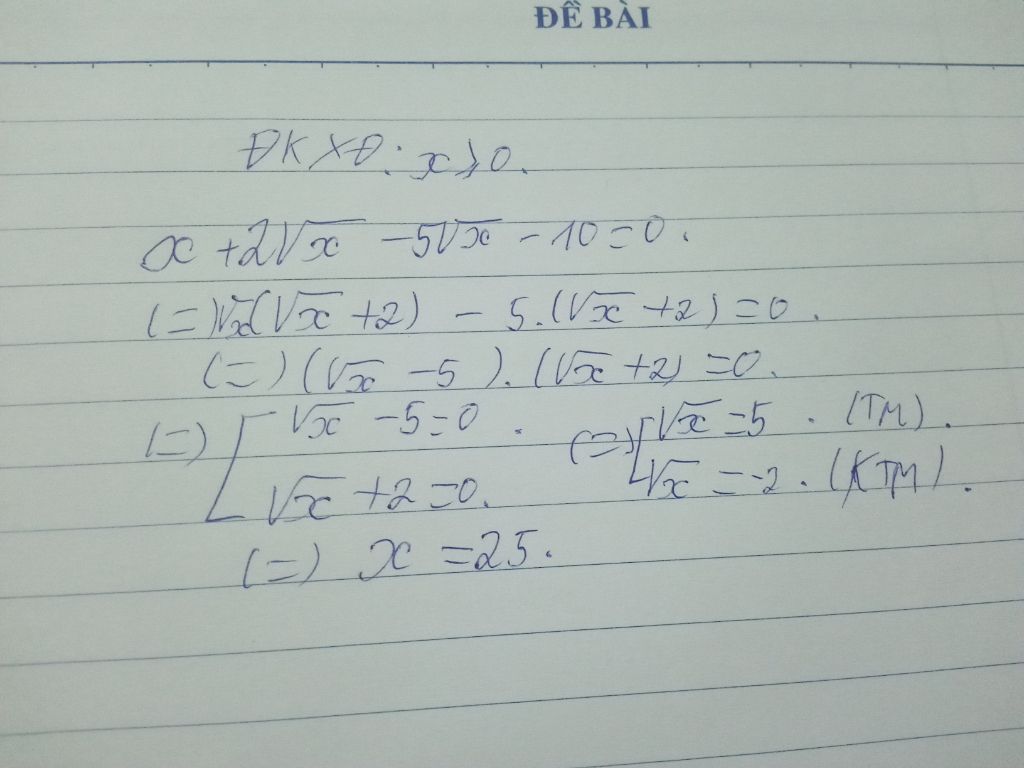 ĐỀ BÀI
ĐKXĐ: x ≥ 0.
x + 2√x - 5√x - 10 = 0.
(=) √x(√x + 2) - 5.(√x + 2) = 0.
(=) (√x - 5).(√x + 2) = 0.
(=) [ √x - 5 = 0. (=) [ √x = 5. (TM).
√x + 2 = 0. √x = -2. (KTM).
(=) x = 25.